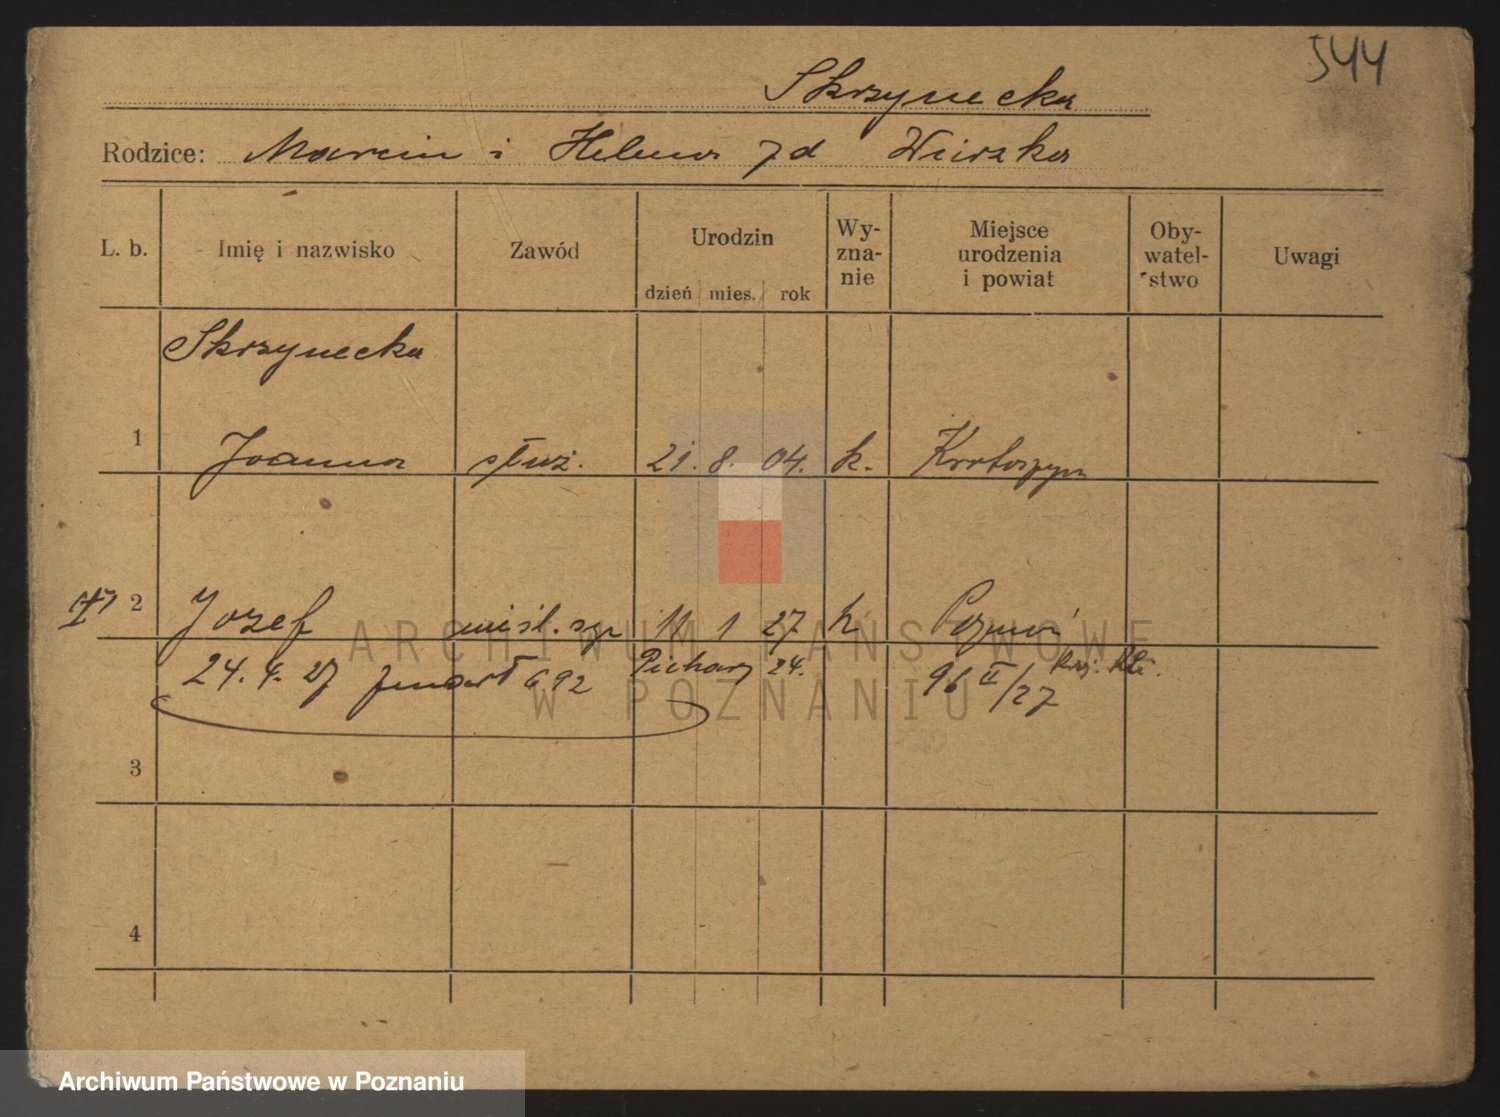 544
Skrzynecka
Rodzice: Marcin i Helena zd Wieszka
L. b.
Imię i nazwisko
Zawód
Urodzin
dzień mies. rok
Wy-
zna-
nie
Miejsce
urodzenia
i powiat
Oby-
watel-
stwo
Uwagi
Skrzynecka
1 Joanna służ. 21. 8. 04. k. Krotoszyn
2 Józef 11 1 27. k Poznań
24. 4. 27 zmarł 692 24. 96 II/27
3
4
ARCHIWUM PAŃSTWOWE
W POZNANIU
Archiwum Państwowe w Poznaniu